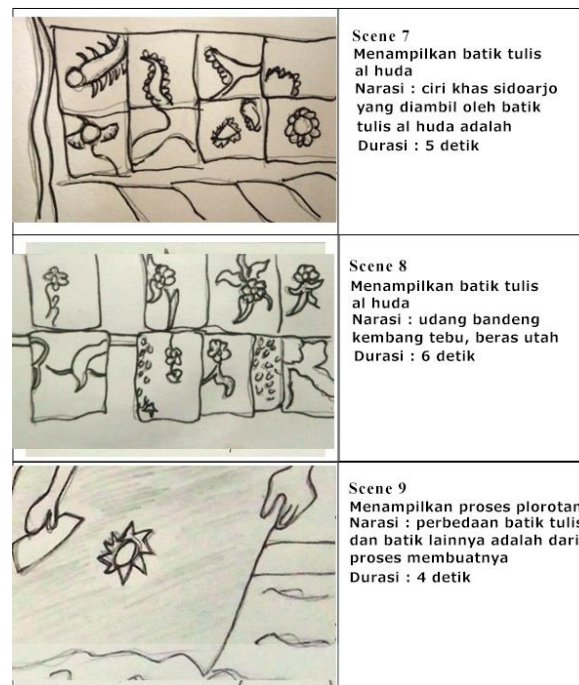 Scene 7
Menampilkan batik tulis
al huda
Narasi : ciri khas sidoarjo
yang diambil oleh batik
tulis al huda adalah
Durasi : 5 detik
Scene 8
Menampilkan batik tulis
al huda
Narasi : udang bandeng
kembang tebu, beras utah
Durasi : 6 detik
Scene 9
Menampilkan proses plorotan
Narasi : perbedaan batik tulis
dan batik lainnya adalah dari
proses membuatnya
Durasi : 4 detik